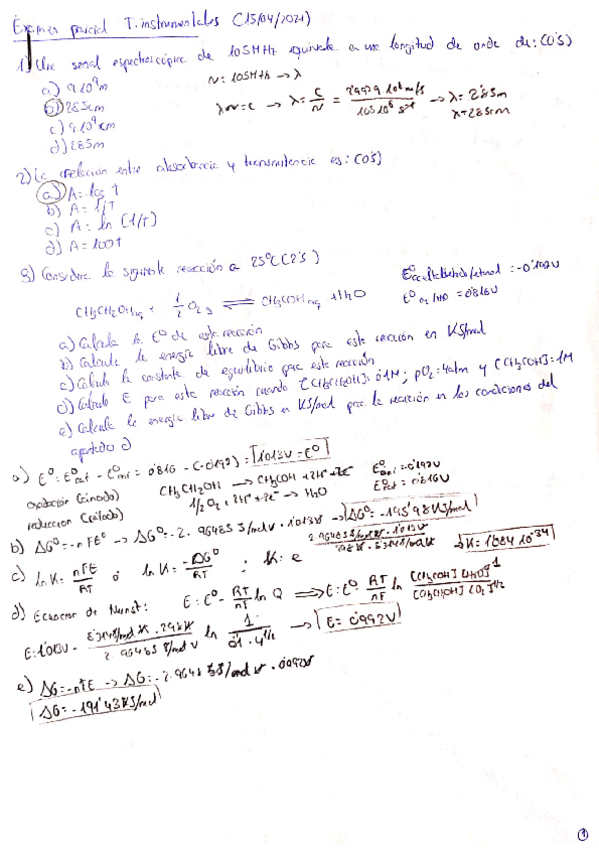 Examen parcial T. instrumentales (15/04/2021)
1) Una señal espectroscópica de 105MHz equivale a una longitud de onda de: (0'5)
a) 9.10⁹m
b) 285cm
c) 9.10⁹cm
d) 285m
ν = 105MHz → λ
λν=c → λ= c/ν = 2'9979 10⁸ m/s / 105 10⁶ s⁻¹ → λ= 2'85m
λ=285cm
2) La relación entre absorbancia y transmitancia es: (0'5)
a) A=-log T
b) A= 1/T
c) A= ln (1/T)
d) A= 100T
3) Considera la siguiente reacción a 25ºC (2'5)
E⁰ acetaldehido/etanol = -0'197V
E⁰ O₂/H₂O = 0'816V
CH₃CH₂OH aq + 1/2 O₂ g ⇌ CH₃COH aq + H₂O
a) Calcula la E⁰ de esta reacción
b) Calcula la energía libre de Gibbs para esta reacción en KJ/mol
c) Calcula la constante de equilibrio para esta reacción
d) Calcula E para esta reacción cuando [CH₃CH₂OH]= 0'1M; pO₂= 4atm y [CH₃COH]= 1M
e) Calcula la energía libre de Gibbs en KJ/mol para la reacción en las condiciones del
apartado d
a) E⁰= E⁰cat - E⁰ani = 0'816 - (-0'197) = 1'013V = E⁰
oxidación (ánodo) CH₃CH₂OH → CH₃COH + 2H⁺ + 2e⁻
reducción (cátodo) 1/2 O₂ + 2H⁺ + 2e⁻ → H₂O
E⁰cat = 0'816V
b) ΔG⁰=-nFE⁰ → ΔG⁰= -2 . 96485 J/mol V . 1'013V → ΔG⁰= -195'48KJ/mol
c) ln K= nFE/RT ó ln K= -ΔG⁰/RT ; K= e
d) Ecuación de Nernst: E= E⁰ - RT/nF ln Q ⟹ E= E⁰ - RT/nF ln [CH₃COH] [H₂O]¹ / [CH₃CH₂OH] [O₂]^1/2
ln 1 / 0'1 . 4^1/2 → E= 0'992V
e) ΔG=-nFE → ΔG= -2 . 96485 J/mol V . 0'992V
ΔG= -191'43KJ/mol
1